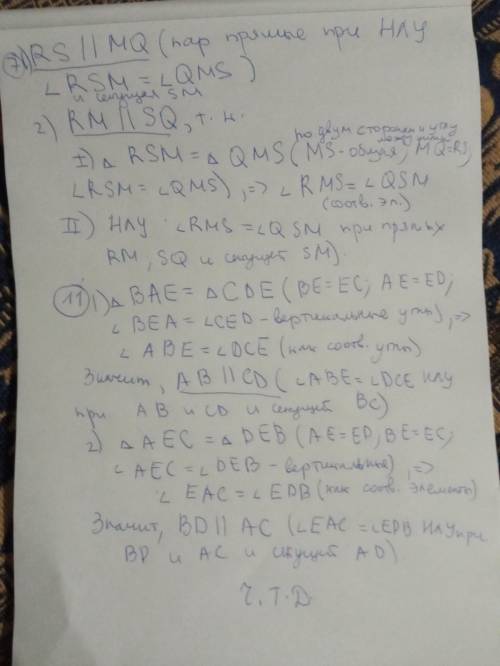 7) 1) RS || MQ (пар прямые при НЛУ
∠RSM = ∠QMS)
и секущая SM
2) RM || SQ, т. к.
по двум сторонам и углу
между ними
I) △ RSM = △ QMS (MS - общая, MQ = RS,
∠RSM = ∠QMS), => ∠RMS = ∠QSM
(соотв. эл.)
II) НЛУ ∠RMS = ∠QSM при прямых
RM, SQ и секущей SM).
11) 1) △ BAE = △ CDE (BE = EC; AE = ED;
∠ BEA = ∠CED - вертикальные углы), =>
∠ ABE = ∠DCE (как соотв. углы)
Значит, AB || CD (∠ABE = ∠DCE НЛУ
при AB и CD и секущей BC)
2) △ AEC = △ DEB (AE = ED, BE = EC;
∠ AEC = ∠ DEB - вертикальные), =>
∠ EAC = ∠ EDB (как соотв. элементы)
Значит, BD || AC (∠EAC = ∠EDB НЛУ при
BD и AC и секущей AD)
Ч.Т.Д